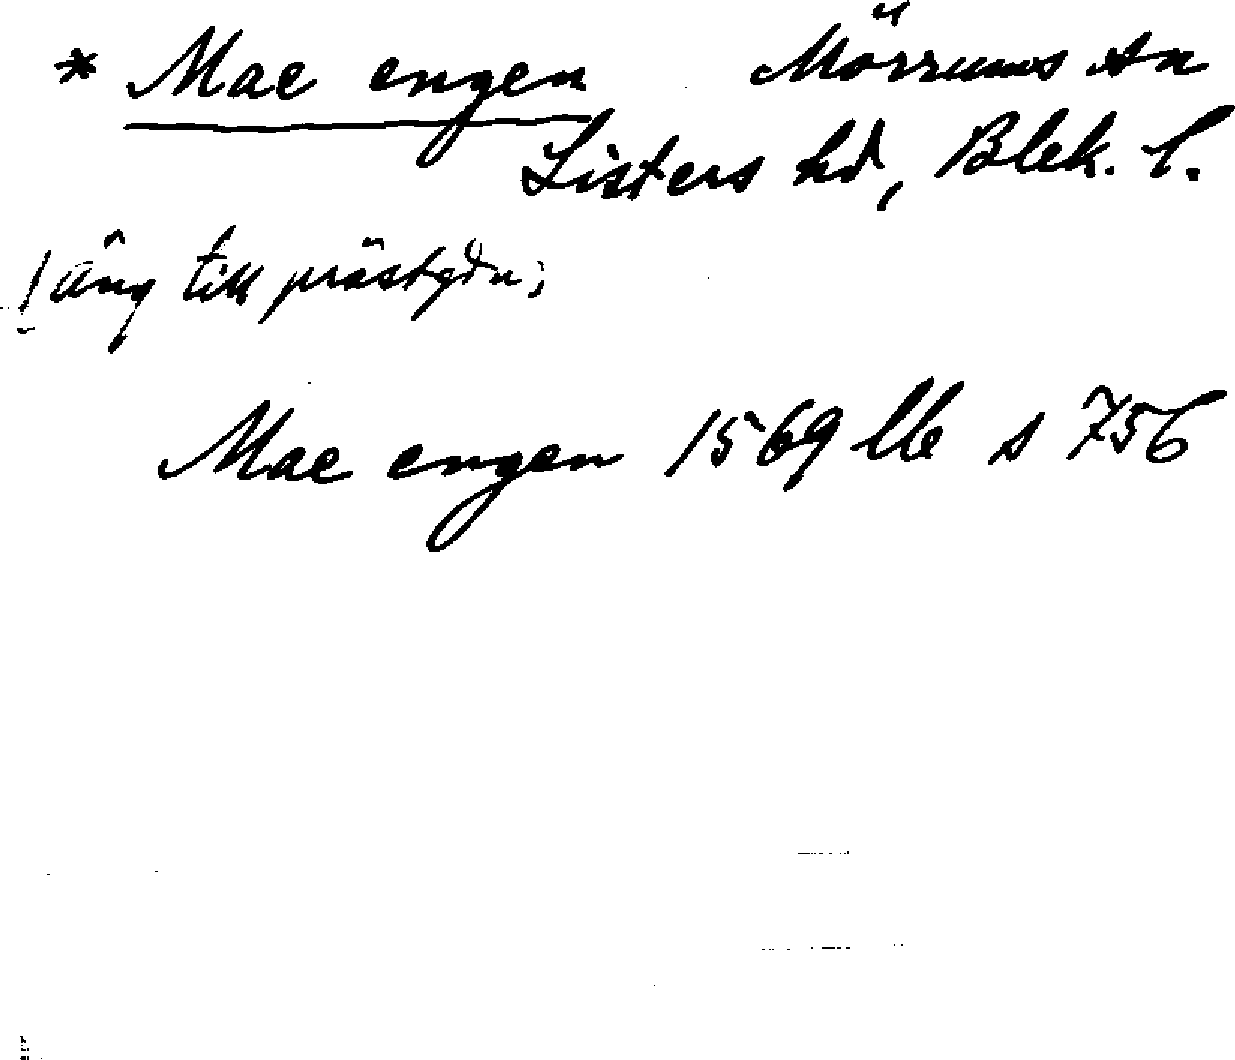 * Mae engen Mörrums sn
Listers hd, Blek. l.
äng till prästgdn;
Mae engen 1569 lb s 756